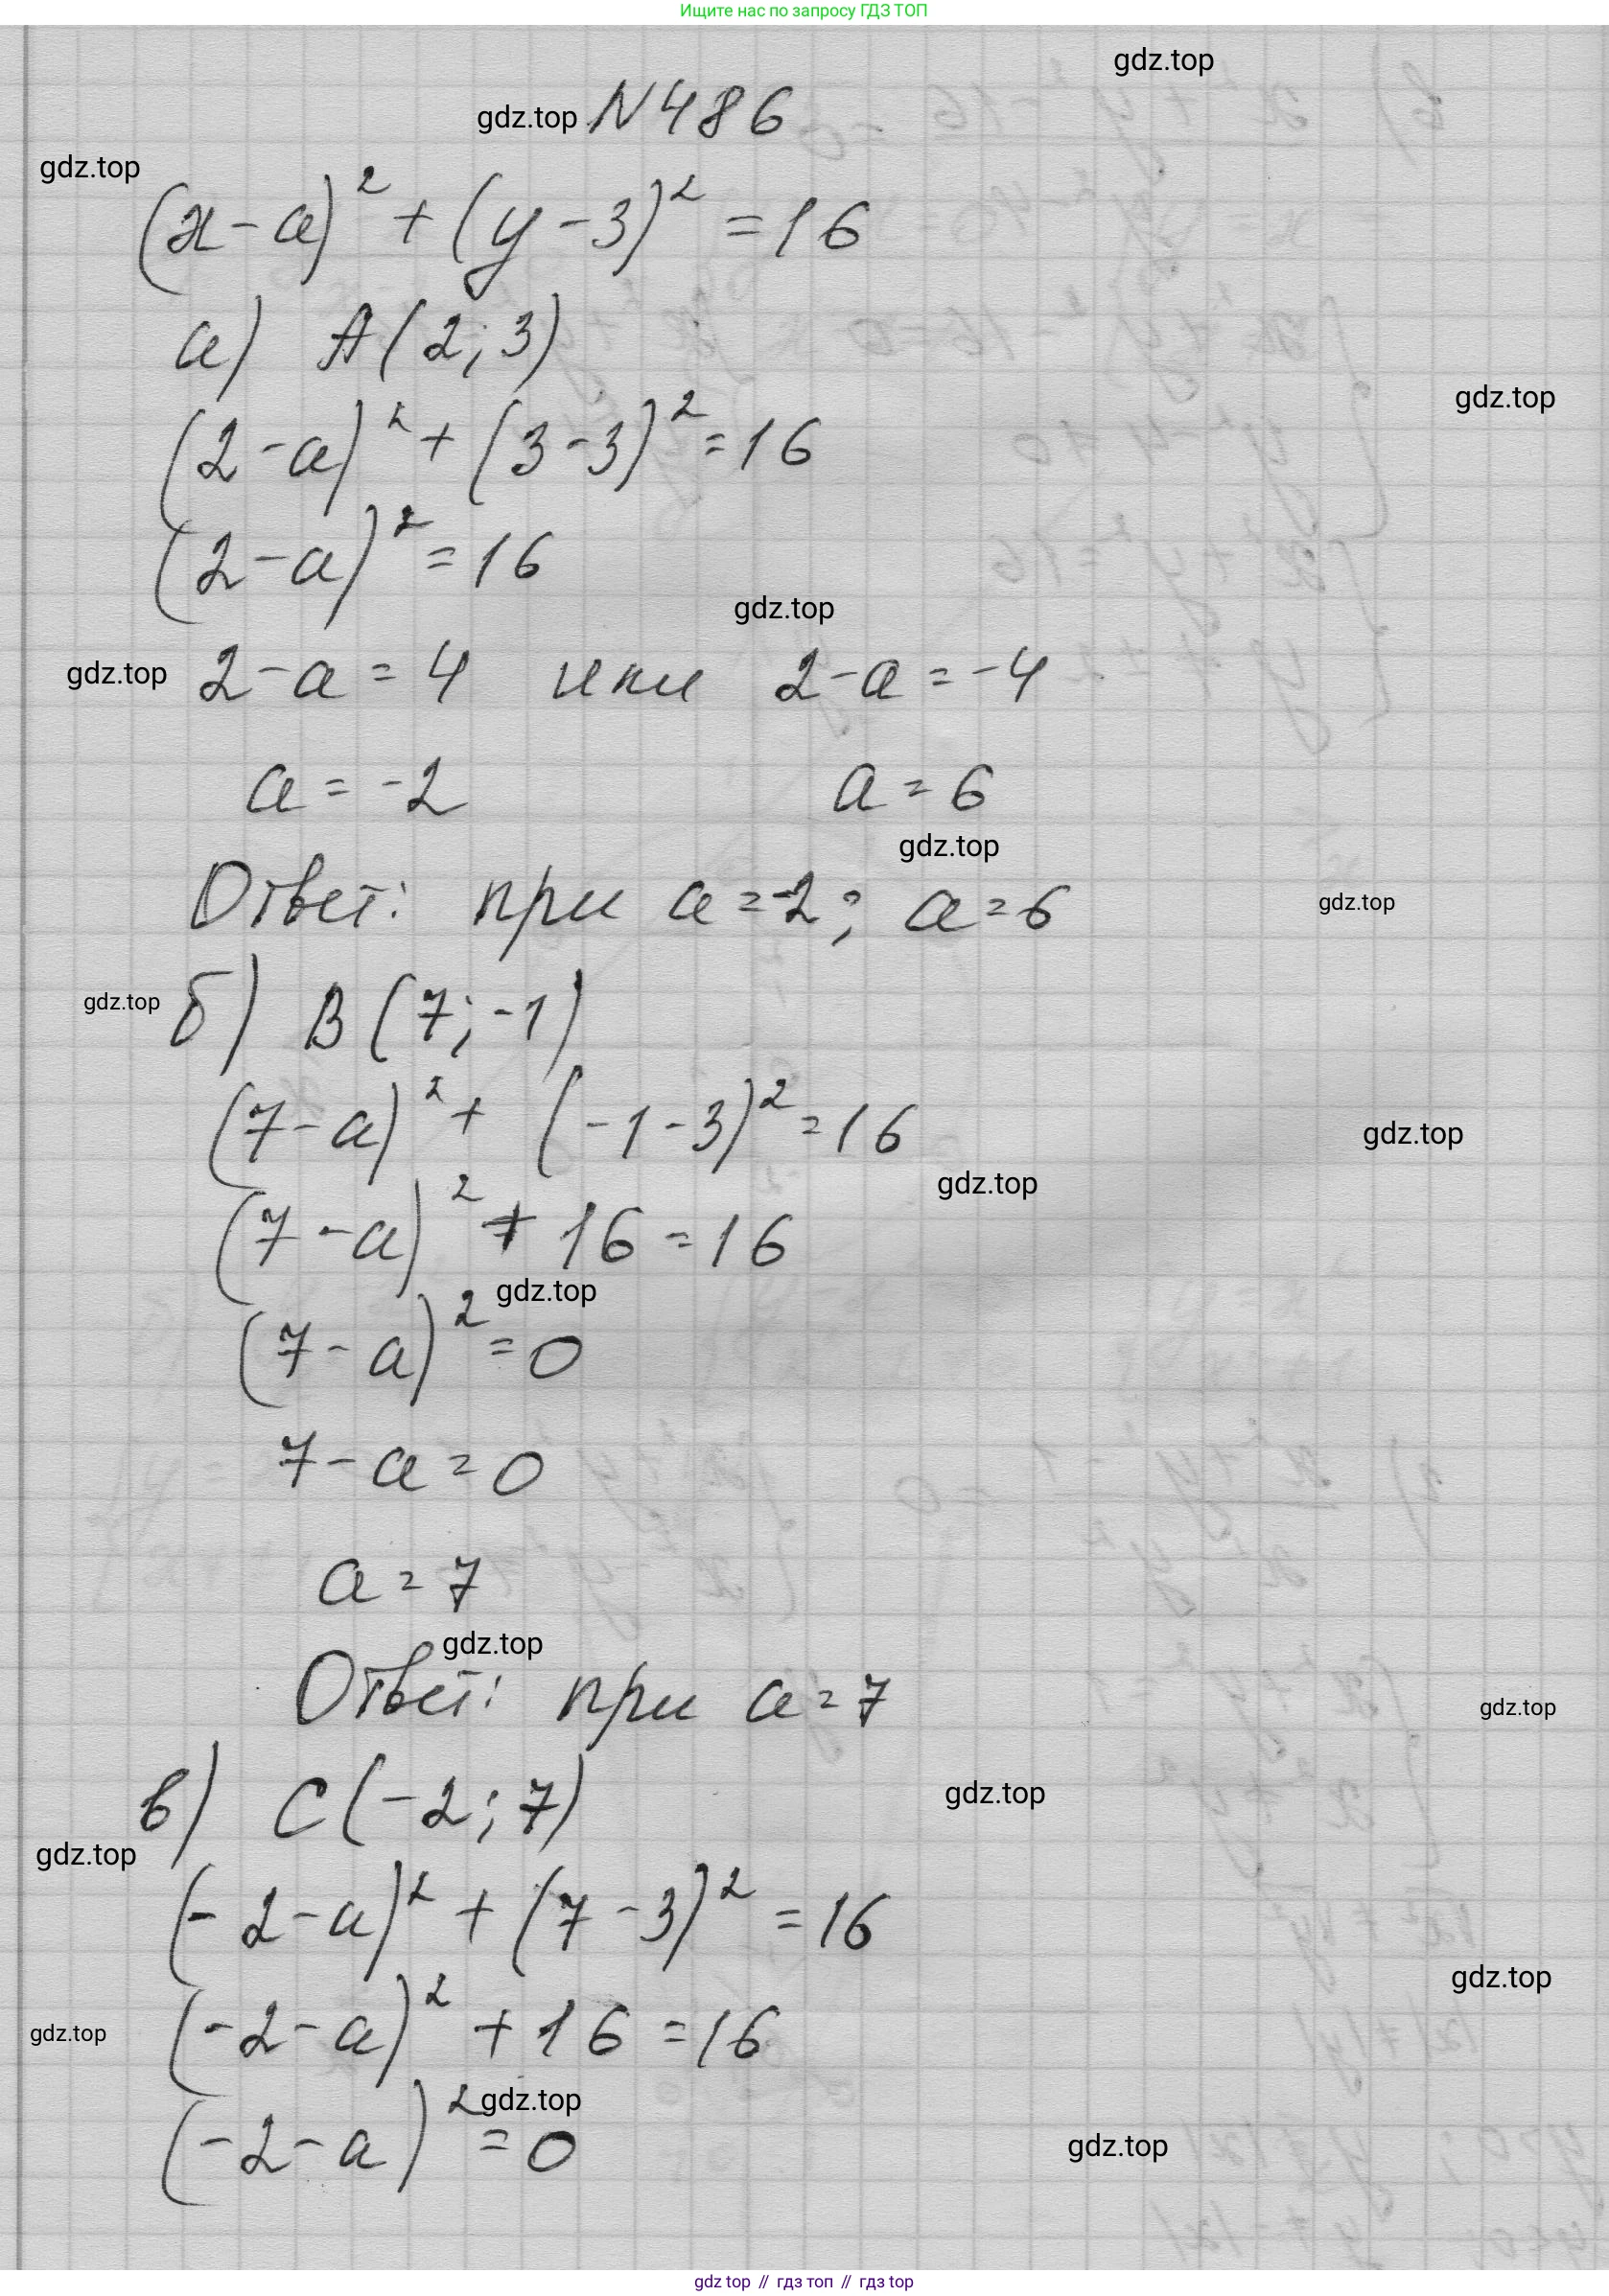 Ищите нас по запросу ГДЗ ТОП
gdz.top
gdz.top N486
gdz.top
(x-a)² + (y-3)² = 16
а) A(2; 3)
gdz.top
(2-a)² + (3-3)² = 16
(2-a)² = 16
gdz.top
gdz.top 2-a = 4 или 2-a = -4
a = -2 a = 6
gdz.top
Ответ: при a = -2; a = 6
gdz.top
gdz.top б) B(7; -1)
(7-a)² + (-1-3)² = 16
gdz.top
gdz.top
(7-a)² + 16 = 16
gdz.top
(7-a)² = 0
7-a = 0
a = 7
gdz.top
Ответ: при a = 7
gdz.top
в) C(-2; 7)
gdz.top
gdz.top
(-2-a)² + (7-3)² = 16
gdz.top
(-2-a)² + 16 = 16
gdz.top
gdz.top
(-2-a)² = 0
gdz.top
gdz top // гдз топ // gdz top